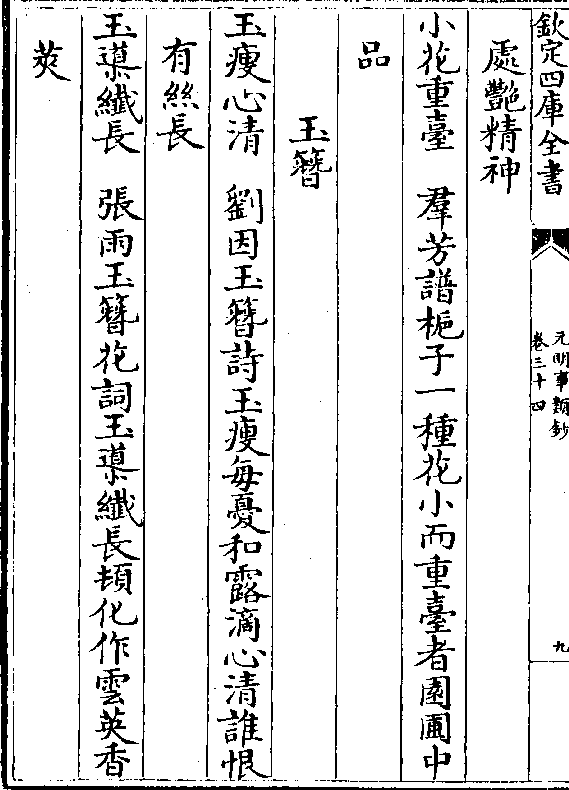 欽定四庫全書
元明事類鈔
卷三十四
九
處艷精神
小花重臺　羣芳譜梔子一種花小而重臺者園圃中
品
玉簪
玉瘦心清　劉因玉簪詩玉瘦每憂和露滴心清誰恨
有絲長
玉導纖長　張雨玉簪花詞玉導纖長頓化作雲英香
莢